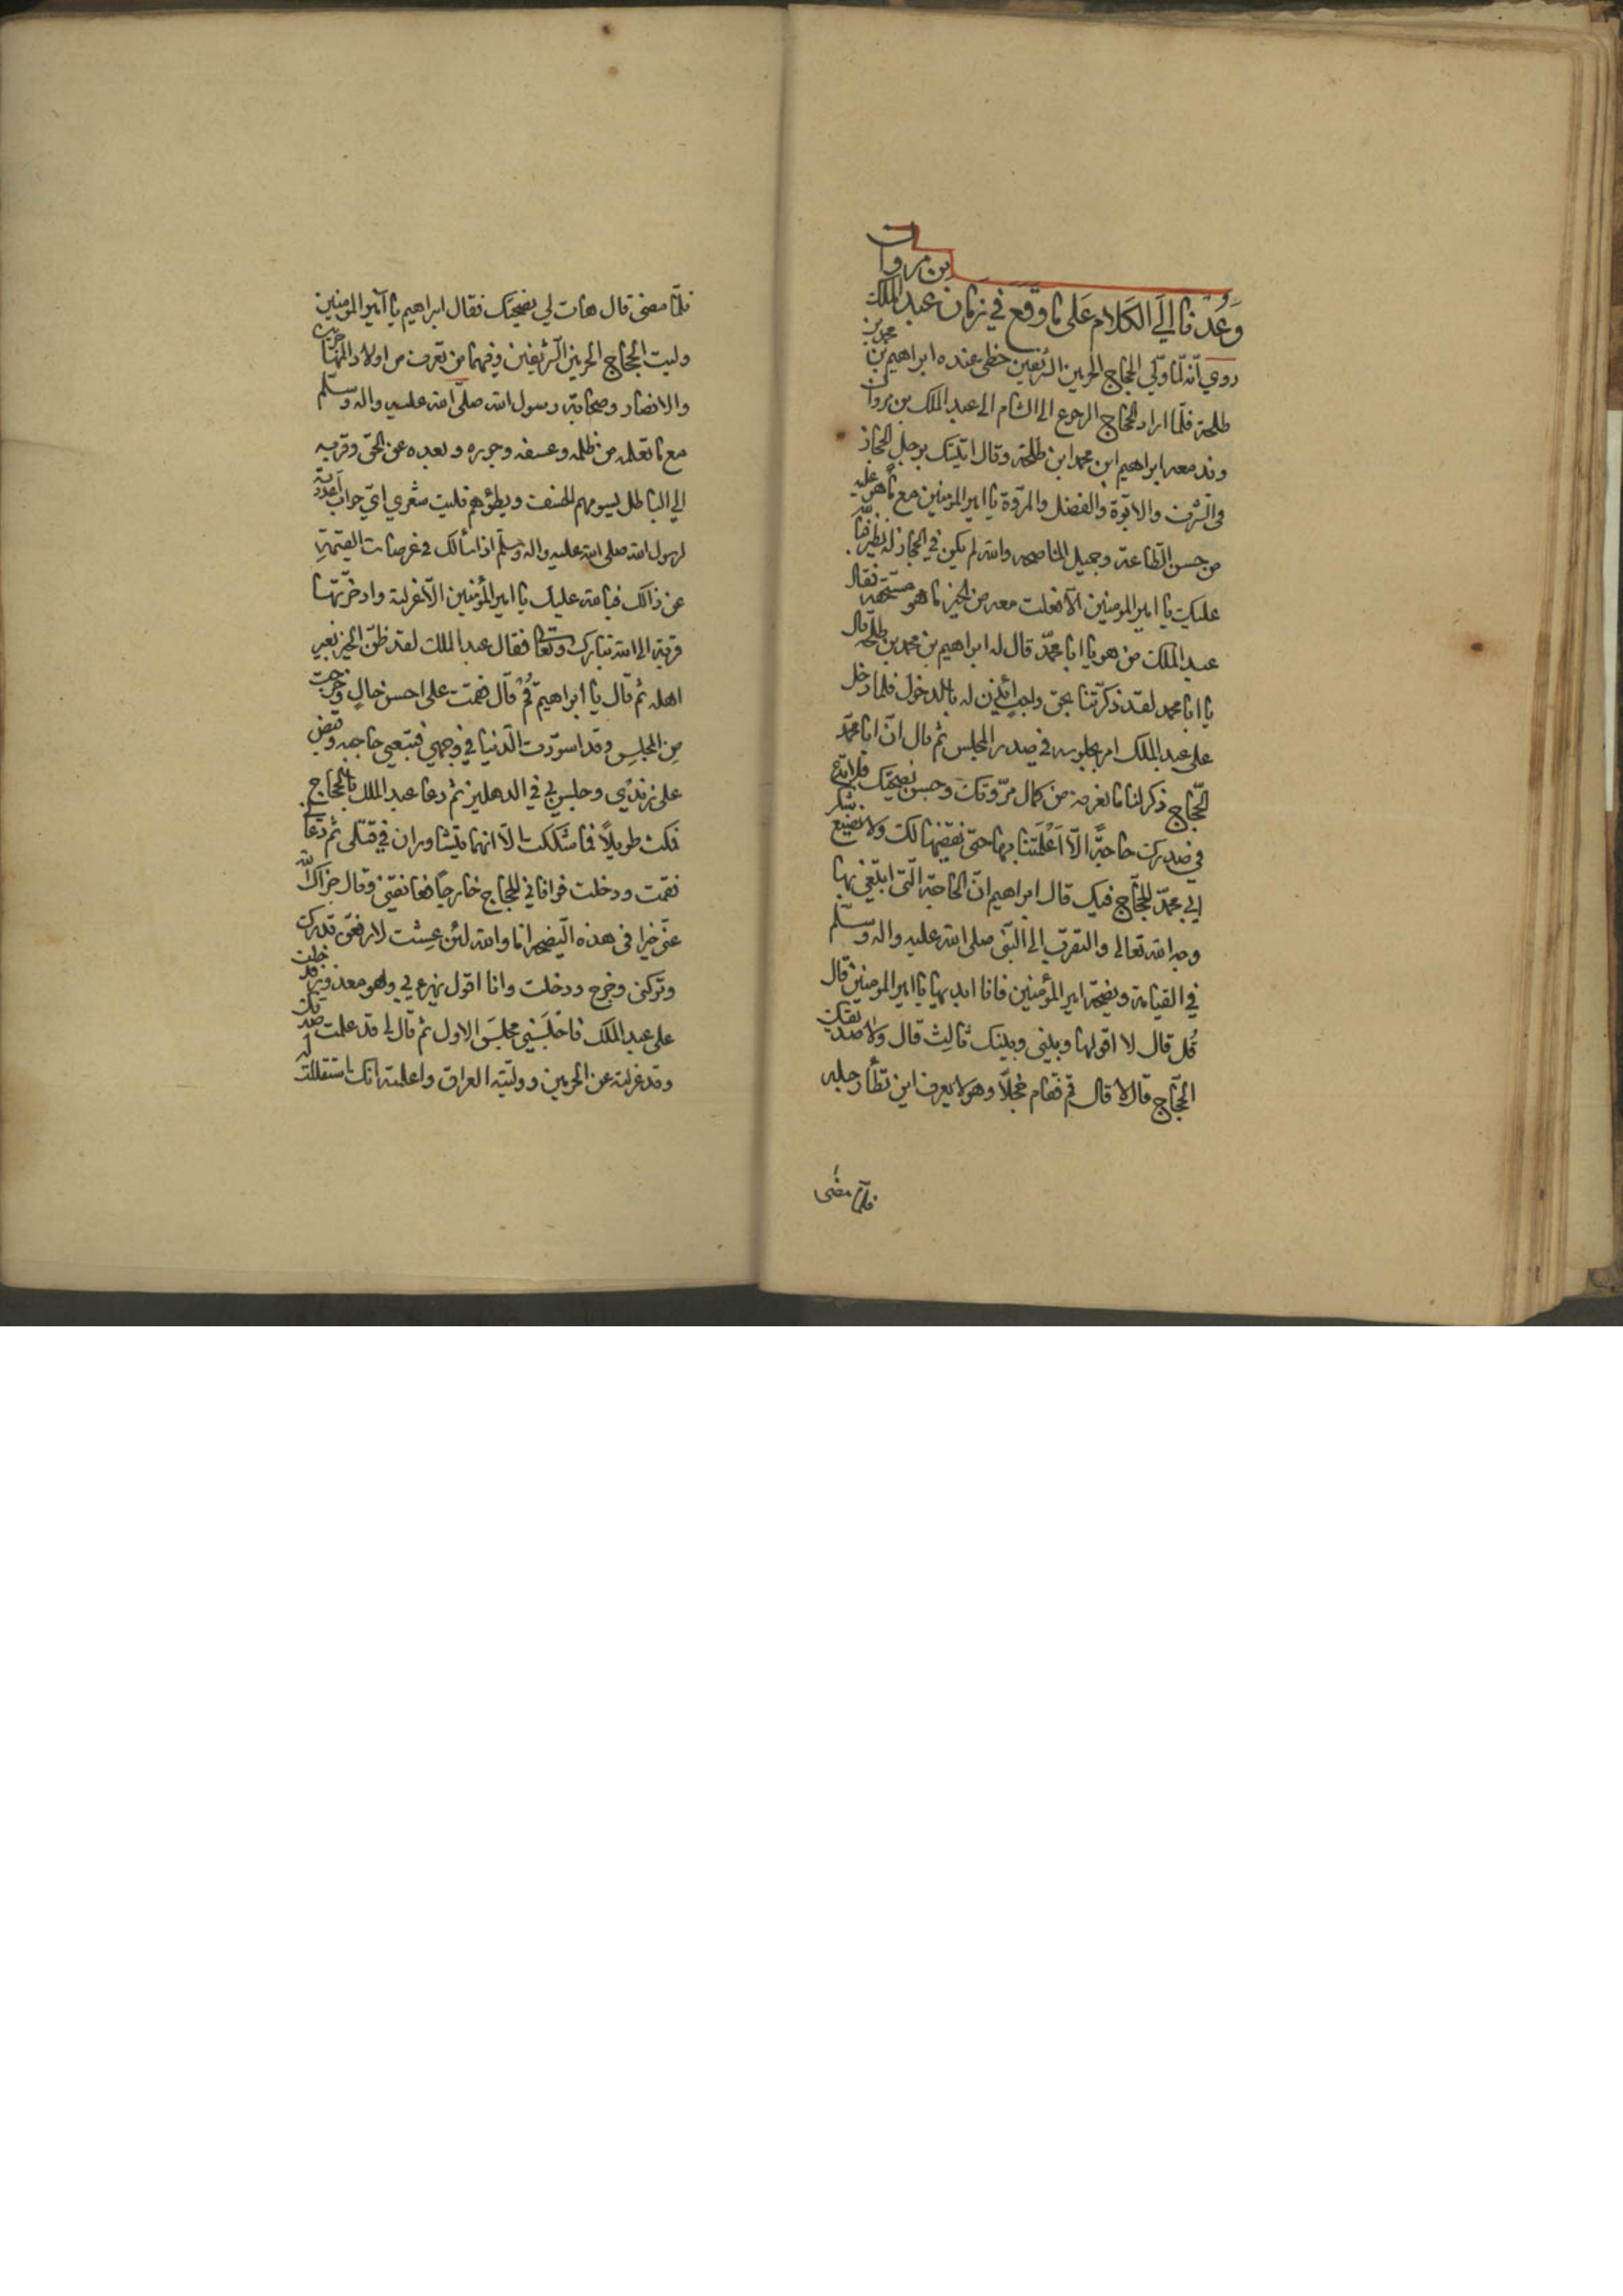 وعدنا إلى الكلام على ما وقع في زمان عبد الملك بن مروان
روي أنه لما ولي الحجاج الحرمين الشريفين حظي عنده ابراهيم بن محمد بن
طلحة فلما اراد الحجاج الرجوع الى الشام الى عبد الملك بن مروان
وفد معه ابراهيم ابن محمد ابن طلحة وقال اتيتك برجل الحجاز
في الشرف والابوة والفضل والمروة يا امير المومنين مع ما هو عليه
من حسن الطاعة وجميل المناصحه والله لم يكن في الحجاز له نظير فبالله
عليك يا امير المومنين الا فعلت معه من الخير ما هو مستحقه فقال
عبد الملك من هو يا ابا محمد قال له ابراهيم بن محمد بن طلحه قال
يا ابا محمد لقد ذكرتنا بحق واجب ائذن له بالدخول فلما دخل
على عبد الملك امر بجلوسه في صدر المجلس ثم قال ان ابا محمد
الحجاج ذكر لنا ما نعرفه من كمال مروتك وحسن نصيحتك فلا تدع
في صدرك حاجة الا اعلمتنا بها حتى نقضيها لك ولا نضيع شكر
ابي محمد للحجاج فيك قال ابراهيم ان الحاجة التي ابتغي بها
وجه الله تعالى والتقرب الى النبي صلى الله عليه واله وسلم
في القيامة ونصيحة امير المؤمنين فانا ابديها يا امير المومنين قال
قل قال لا اقولها وبيني وبينك ثالث قال ولا صديقك
الحجاج قال لا قال قم فقام خجلا وهو لا يعرف اين تطأ رجليه
فلما مضى
فلما مضى قال هات لي نصيحتك فقال ابراهيم يا امير المومنين
وليت الحجاج الحرمين الشريفين وفيهما من تعرف من اولاد المهاجرين
والانصار وصحابة رسول الله صلى الله عليه واله وسلم
مع ما تعلمه من ظلمه وعسفه وجوره وبعده عن الحق وقربه
الى الباطل يسومهم الخسف ويطؤهم فليت شعري اي جواب اعددته
لرسول الله صلى الله عليه واله وسلم اذا سألك في عرصات القيمة
عن ذالك فبالله عليك يا امير المؤمنين الا عزلته وادخرتها
قربة الى الله تبارك وتعالى فقال عبد الملك لقد ظن الخير بغير
اهله ثم قال يا ابراهيم قم قال فقمت على احسن حال وخرجت
من المجلس وقد اسودت الدنيا في وجهي فتبعني حاجبه وقبض
على زندي وجلس بي في الدهليز ثم دعا عبد الملك بالحجاج
فمكث طويلا فما شككت الا انهما يتشاوران في قتلي ثم دعا بي
فقمت ودخلت فوافاني الحجاج خارجا فعانقني وقال جزاك الله
عني خيرا في هذه النصيحه اما والله لئن عشت لارفعن قدرك
وتركني وخرج ودخلت وانا اقول يهزء بي وهو معذور فدخلت
على عبد الملك فاجلسني مجلس الاول ثم قال لي قد علمت صدقك
وقد عزلته عن الحرمين ووليته العراق واعلمته انك استقللت له